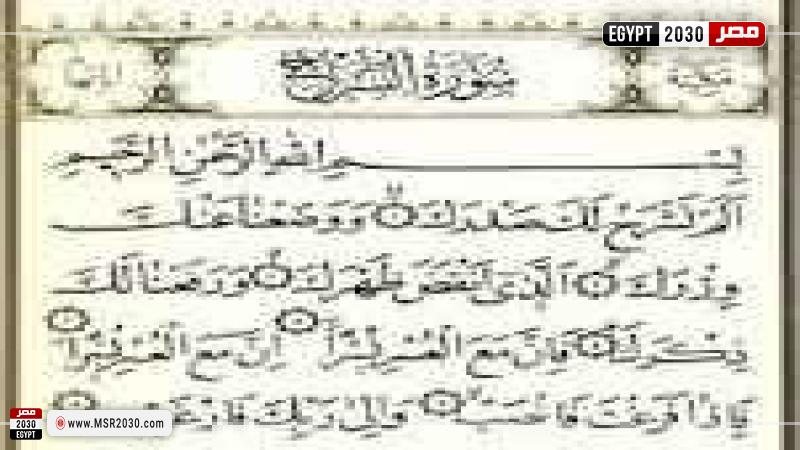 EGYPT 2030 مصر
سورة الشرح
بسم الله الرحمن الرحيم
ألم نشرح لك صدرك ووضعنا عنك
وزرك الذي أنقض ظهرك ورفعنا لك
ذكرك فإن مع العسر يسرا إن مع العسر يسرا
فإذا فرغت فانصب وإلى ربك فارغب
مصر 2030 EGYPT
www.MSR2030.com